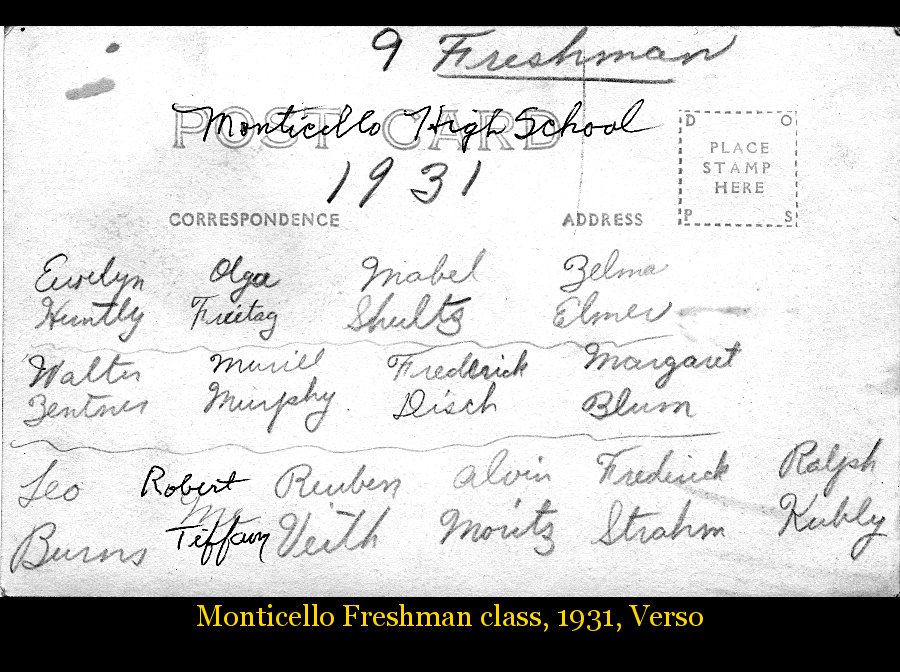 9 Freshman
POST CARD
Monticello High School
1931
D O
PLACE
STAMP
HERE
P S
CORRESPONDENCE ADDRESS
Evelyn Olga Mabel Zelma
Huntly Freitag Shultz Elmer
Walter Muriel Frederick Margaret
Zentner Murphy Disch Blum
Leo Robert Reuben Alvin Frederick Ralph
Burns Tiffany Veith Moritz Strahm Kubly
Monticello Freshman class, 1931, Verso